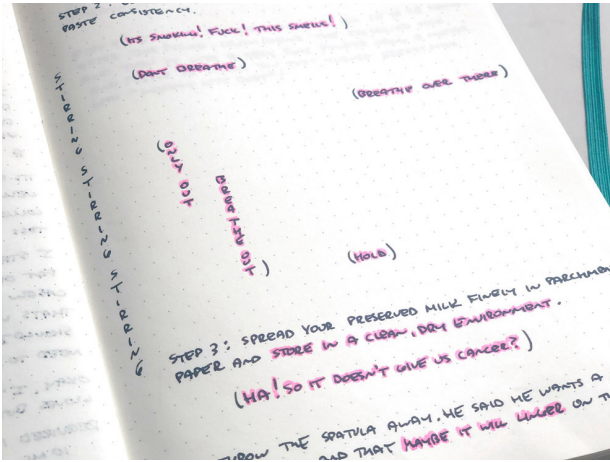 STEP 2:
PASTE CONSISTENCY.
(ITS SMOKING! FUCK! THIS SMELLS!)
(DONT BREATHE)
(BREATHE OVER THERE)
STIRRING STIRRING STIRRING
(ONLY OUT
BREATHE OUT)
(HOLD)
STEP 3: SPREAD YOUR PRESERVED MILK FINELY IN PARCHMEN
PAPER AND STORE IN A CLEAN, DRY ENVIRONMENT.
(HA! SO IT DOESN'T GIVE US CANCER?)
THROW THE SPATULA AWAY. HE SAID HE WANTS A
AND THAT MAYBE IT WILL LINGER ON